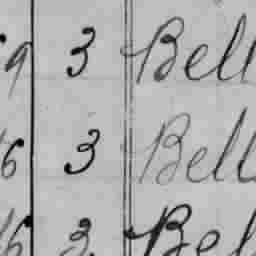 9 3 Bell
6 3 Bell
6 3 Bel